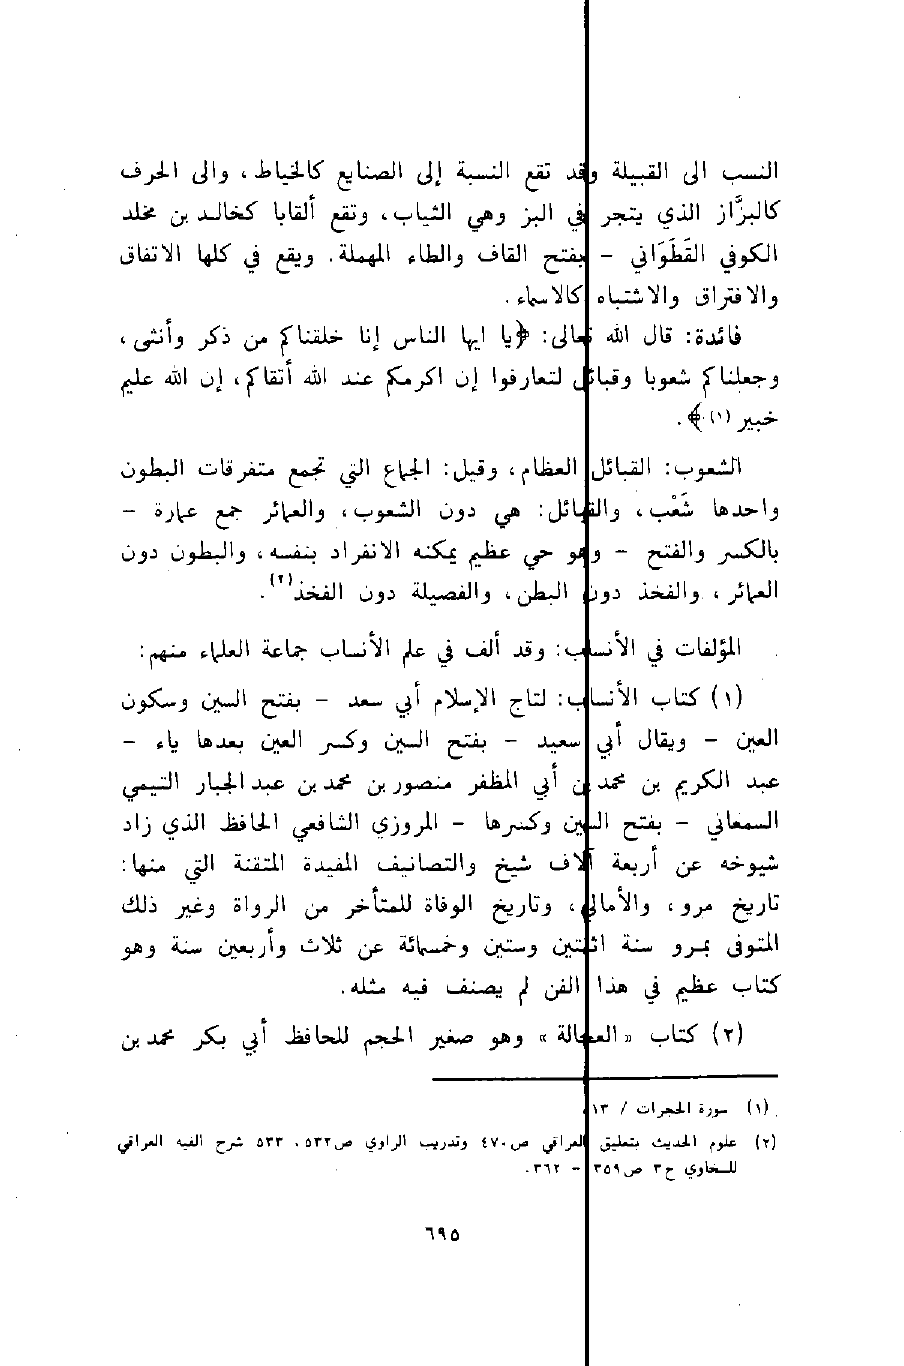 النسب الى القبيلة وقد تقع النسبة إلى الصنايع كالخياط، والى الحرف
كالبزَّاز الذي يتجر في البز وهي الثياب، وتقع ألقابا كخالد بن مخلد
الكوفي القَطَوَاني – بفتح القاف والطاء المهملة. ويقع في كلها الاتفاق
والافتراق والاشتباه كالاسماء.
فائدة: قال الله تعالى: ﴿يا ايها الناس إنا خلقناكم من ذكر وأنثى،
وجعلناكم شعوبا وقبائل لتعارفوا إن اكرمكم عند الله أتقاكم، إن الله عليم
خبير (١)﴾.
الشعوب: القبائل العظام، وقيل: الجماع التي تجمع متفرقات البطون
واحدها شَعْب، والقبائل: هي دون الشعوب، والعمائر جمع عمارة –
بالكسر والفتح – وهو حي عظيم يمكنه الانفراد بنفسه، والبطون دون
العمائر، والفخذ دون البطن، والفصيلة دون الفخذ(٢).
المؤلفات في الأنساب: وقد ألف في علم الأنساب جماعة العلماء منهم:
(١) كتاب الأنساب: لتاج الإسلام أبي سعد – بفتح السين وسكون
العين – ويقال أبي سعيد – بفتح السين وكسر العين بعدها ياء –
عبد الكريم بن محمد بن أبي المظفر منصور بن محمد بن عبد الجبار التيمي
السمعاني – بفتح السين وكسرها – المروزي الشافعي الحافظ الذي زاد
شيوخه عن أربعة آلاف شيخ والتصانيف المفيدة المتقنة التي منها:
تاريخ مرو، والأمالي، وتاريخ الوفاة للمتأخر من الرواة وغير ذلك
المتوفى بمرو سنة اثنتين وستين وخمسمائة عن ثلاث وأربعين سنة وهو
كتاب عظيم في هذا الفن لم يصنف فيه مثله.
(٢) كتاب «العجالة» وهو صغير الحجم للحافظ أبي بكر محمد بن
(١) سورة الحجرات / ١٣
(٢) علوم الحديث بتعليق العراقي ص٤٧٠ وتدريب الراوي ص٥٣٢، ٥٣٣ شرح الفيه العراقي
للسخاوي ج٣ ص٣٥٩ – ٣٦٢.
٦٩٥